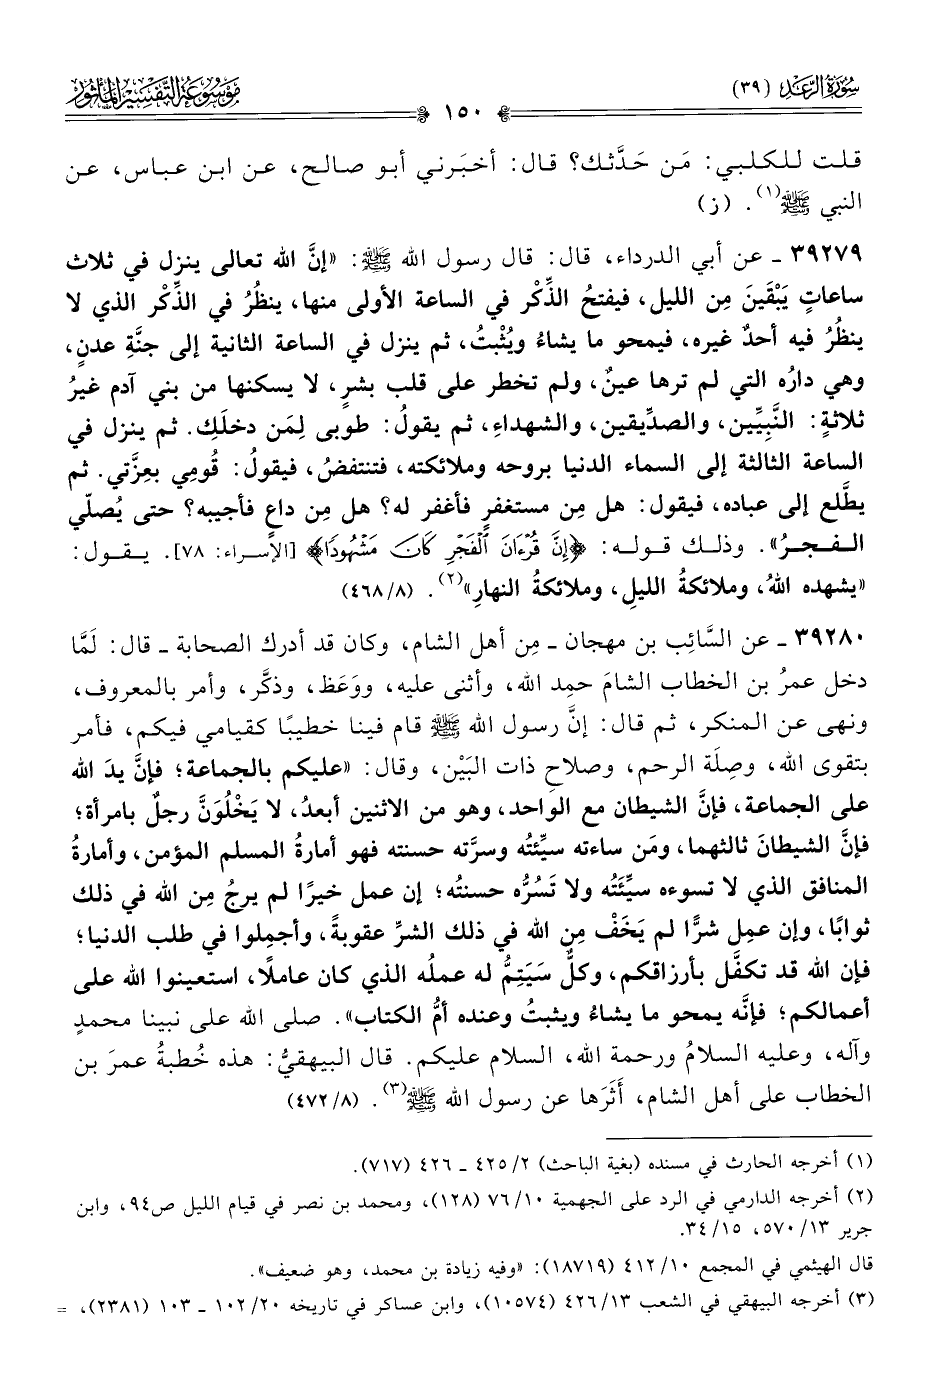 سورة الرعد (٣٩)
١٥٠
موسوعة التفسير المأثور
قلت للكلبي: مَن حَدَّثك؟ قال: أخبَرني أبو صالح، عن ابن عباس، عن
النبي ﷺ(١). (ز)
٣٩٢٧٩ ـ عن أبي الدرداء، قال: قال رسول الله ﷺ: «إنَّ الله تعالى ينزل في ثلاث
ساعاتٍ يَبْقَينَ مِن الليل، فيفتحُ الذِّكْر في الساعة الأولى منها، ينظرُ في الذِّكْر الذي لا
ينظرُ فيه أحدٌ غيره، فيمحو ما يشاءُ ويُثْبتُ، ثم ينزل في الساعة الثانية إلى جنَّةِ عدنٍ،
وهي دارُه التي لم ترها عينٌ، ولم تخطر على قلب بشرٍ، لا يسكنها من بني آدم غيرُ
ثلاثةٍ: النَّبِيِّين، والصدِّيقين، والشهداءِ، ثم يقولُ: طوبى لِمَن دخلَكِ. ثم ينزل في
الساعة الثالثة إلى السماء الدنيا بروحه وملائكته، فتنتفضُ، فيقولُ: قُومِي بعِزَّتي. ثم
يطَّلع إلى عباده، فيقول: هل مِن مستغفرٍ فأغفر له؟ هل مِن داعٍ فأجيبه؟ حتى يُصلّي
الفجرُ». وذلك قوله: ﴿إِنَّ قُرْءَانَ ٱلْفَجْرِ كَانَ مَشْهُودًا﴾ [الإسراء: ٧٨]. يقول:
«يشهده اللهُ، وملائكةُ الليلِ، وملائكةُ النهارِ»(٢). (٤٦٨/٨)
٣٩٢٨٠ ـ عن السَّائِب بن مهجان ـ مِن أهل الشام، وكان قد أدرك الصحابة ـ قال: لَمَّا
دخل عمرُ بن الخطاب الشامَ حمِد الله، وأثنى عليه، ووَعَظ، وذكَّر، وأمر بالمعروف،
ونهى عن المنكر، ثم قال: إنَّ رسول الله ﷺ قام فينا خطيبًا كقيامي فيكم، فأمر
بتقوى الله، وصِلَة الرحم، وصلاحِ ذات البَيْن، وقال: «عليكم بالجماعة؛ فإنَّ يدَ الله
على الجماعة، فإنَّ الشيطان مع الواحد، وهو من الاثنين أبعدُ، لا يَخْلُوَنَّ رجلٌ بامرأة؛
فإنَّ الشيطانَ ثالثهما، ومَن ساءته سيِّئتُه وسرَّته حسنته فهو أمارةُ المسلم المؤمن، وأمارةُ
المنافق الذي لا تسوءه سيِّئَتُه ولا تَسُرُّه حسنتُه؛ إن عمل خيرًا لم يرجُ مِن الله في ذلك
ثوابًا، وإن عمِل شرًّا لم يَخَفْ مِن الله في ذلك الشرِّ عقوبةً، وأجمِلوا في طلب الدنيا؛
فإن الله قد تكفَّل بأرزاقكم، وكلٌّ سَيَتِمُّ له عملُه الذي كان عاملًا، استعينوا الله على
أعمالكم؛ فإنَّه يمحو ما يشاءُ ويثبتُ وعنده أمُّ الكتاب». صلى الله على نبينا محمدٍ
وآله، وعليه السلامُ ورحمة الله، السلام عليكم. قال البيهقيُّ: هذه خُطبةُ عمرَ بن
الخطاب على أهل الشام، أَثَرَها عن رسول الله ﷺ(٣). (٤٧٢/٨)
(١) أخرجه الحارث في مسنده (بغية الباحث) ٤٢٥/٢ ـ ٤٢٦ (٧١٧).
(٢) أخرجه الدارمي في الرد على الجهمية ٧٦/١٠ (١٢٨)، ومحمد بن نصر في قيام الليل ص٩٤، وابن
جرير ٥٧٠/١٣، ٣٤/١٥.
قال الهيثمي في المجمع ٤١٢/١٠ (١٨٧١٩): «وفيه زيادة بن محمد، وهو ضعيف».
(٣) أخرجه البيهقي في الشعب ٤٢٦/١٣ (١٠٥٧٤)، وابن عساكر في تاريخه ١٠٢/٢٠ ـ ١٠٣ (٢٣٨١)، =